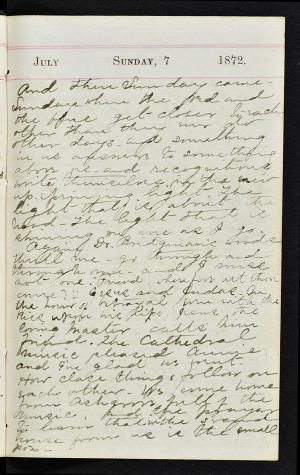 July Sunday, 7 1872.
And then Sunday came.
Sunday when the Lord and
the soul get closer to each
other than they are on
other days. and something
in us answers to something
above us and recognitions
light. The
light that is about the
Word. The light that is
shining on me as I go.
Again Dr. Bridgman's words
thrill me. go through and
through me. and I miss
not one. Friend wherefore art thou
come? Jesus and Judas. On
the hour of betrayal, one with the
kiss upon his lips. Jesus the
loving Master. calls him
friend. The Cathedral
music pleased Annie,
and I'm glad we went.
How close things follow on
each other. We come home
from Ashgrove, full of the
music. and the prayer
to learn that in the
house from us is the small
pox.